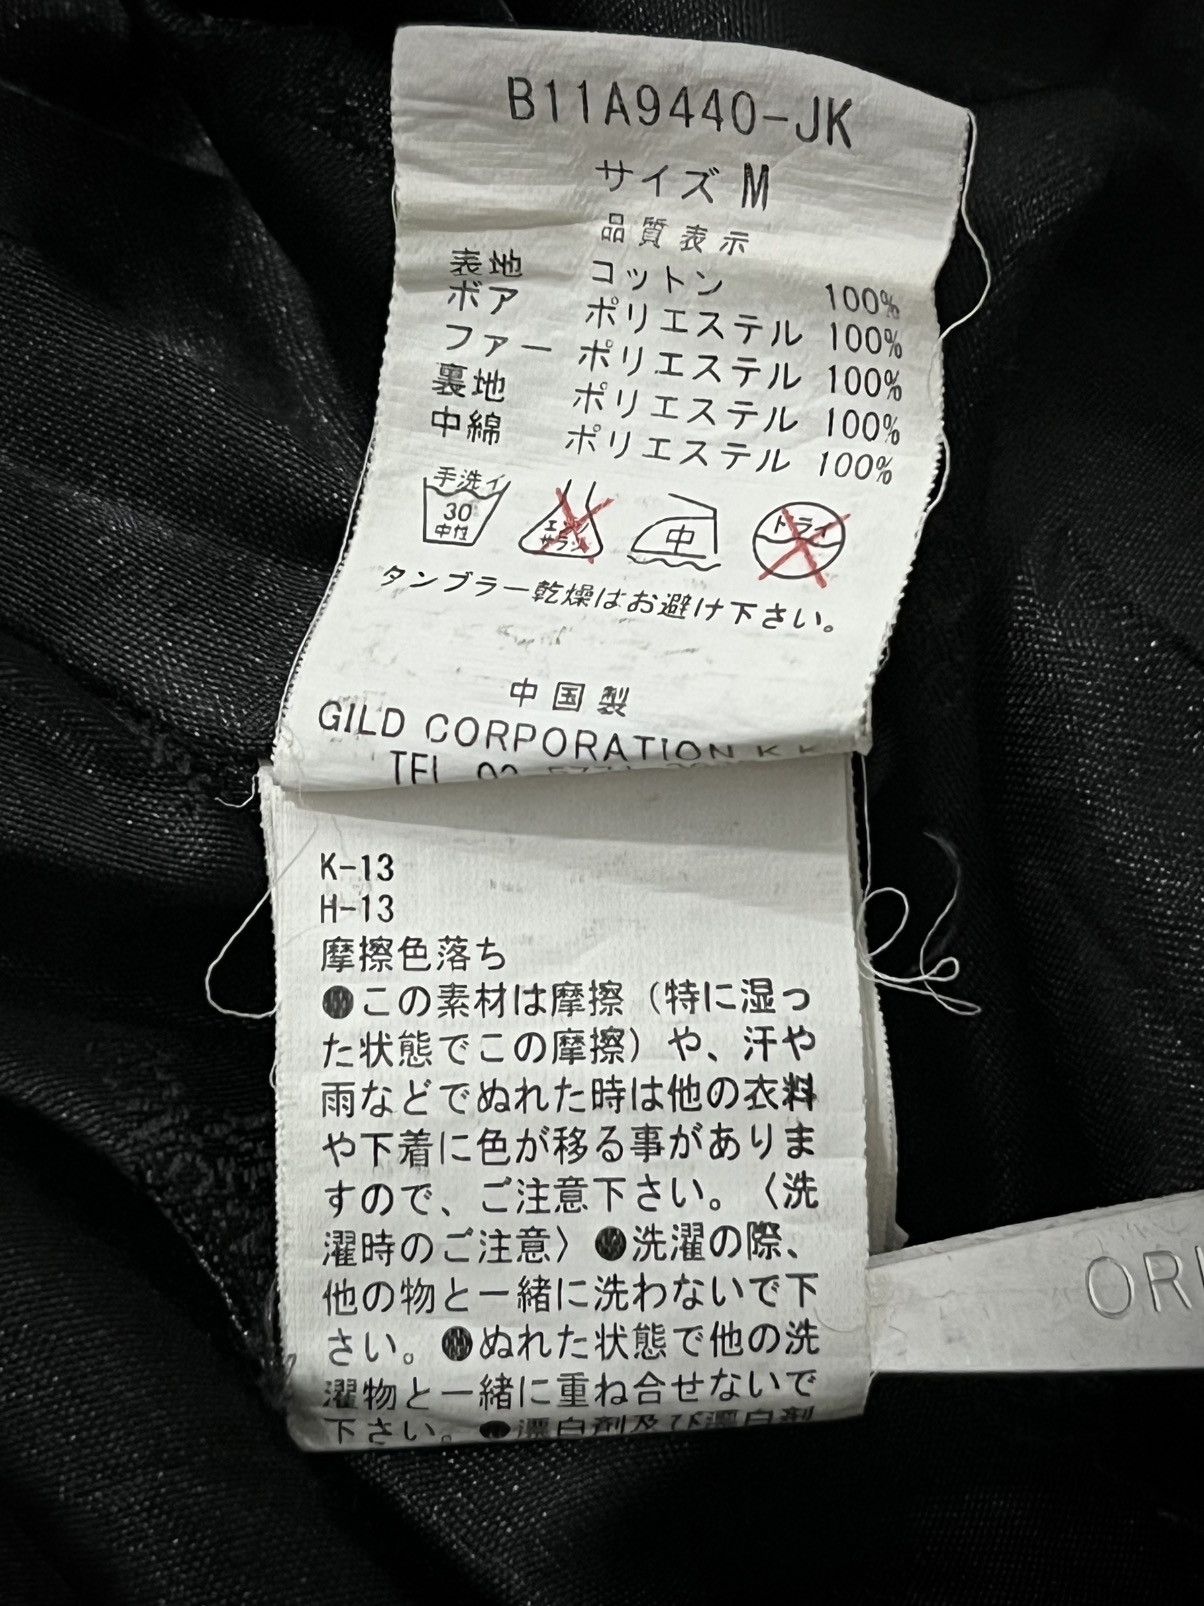 B11A9440-JK
サイズ M
品質表示
表地 コットン 100%
ボア ポリエステル 100%
ファー ポリエステル 100%
裏地 ポリエステル 100%
中綿 ポリエステル 100%
手洗イ
30
中性
エンソ
サラシ
中
ドライ
タンブラー乾燥はお避け下さい。
中国製
GILD CORPORATION K.K
TEL
K-13
H-13
摩擦色落ち
●この素材は摩擦（特に湿っ
た状態でこの摩擦）や、汗や
雨などでぬれた時は他の衣料
や下着に色が移る事がありま
すので、ご注意下さい。〈洗
濯時のご注意〉●洗濯の際、
他の物と一緒に洗わないで下
さい。●ぬれた状態で他の洗
濯物と一緒に重ね合せないで
下さい。●漂白剤及び漂白剤